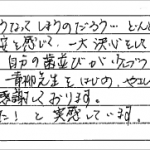 うなってしまうのだろう…どんど
安を感じて、一大決心をして
自分の歯並びが
青柳先生をはじめ、や
感謝しております。
た！と実感しています。